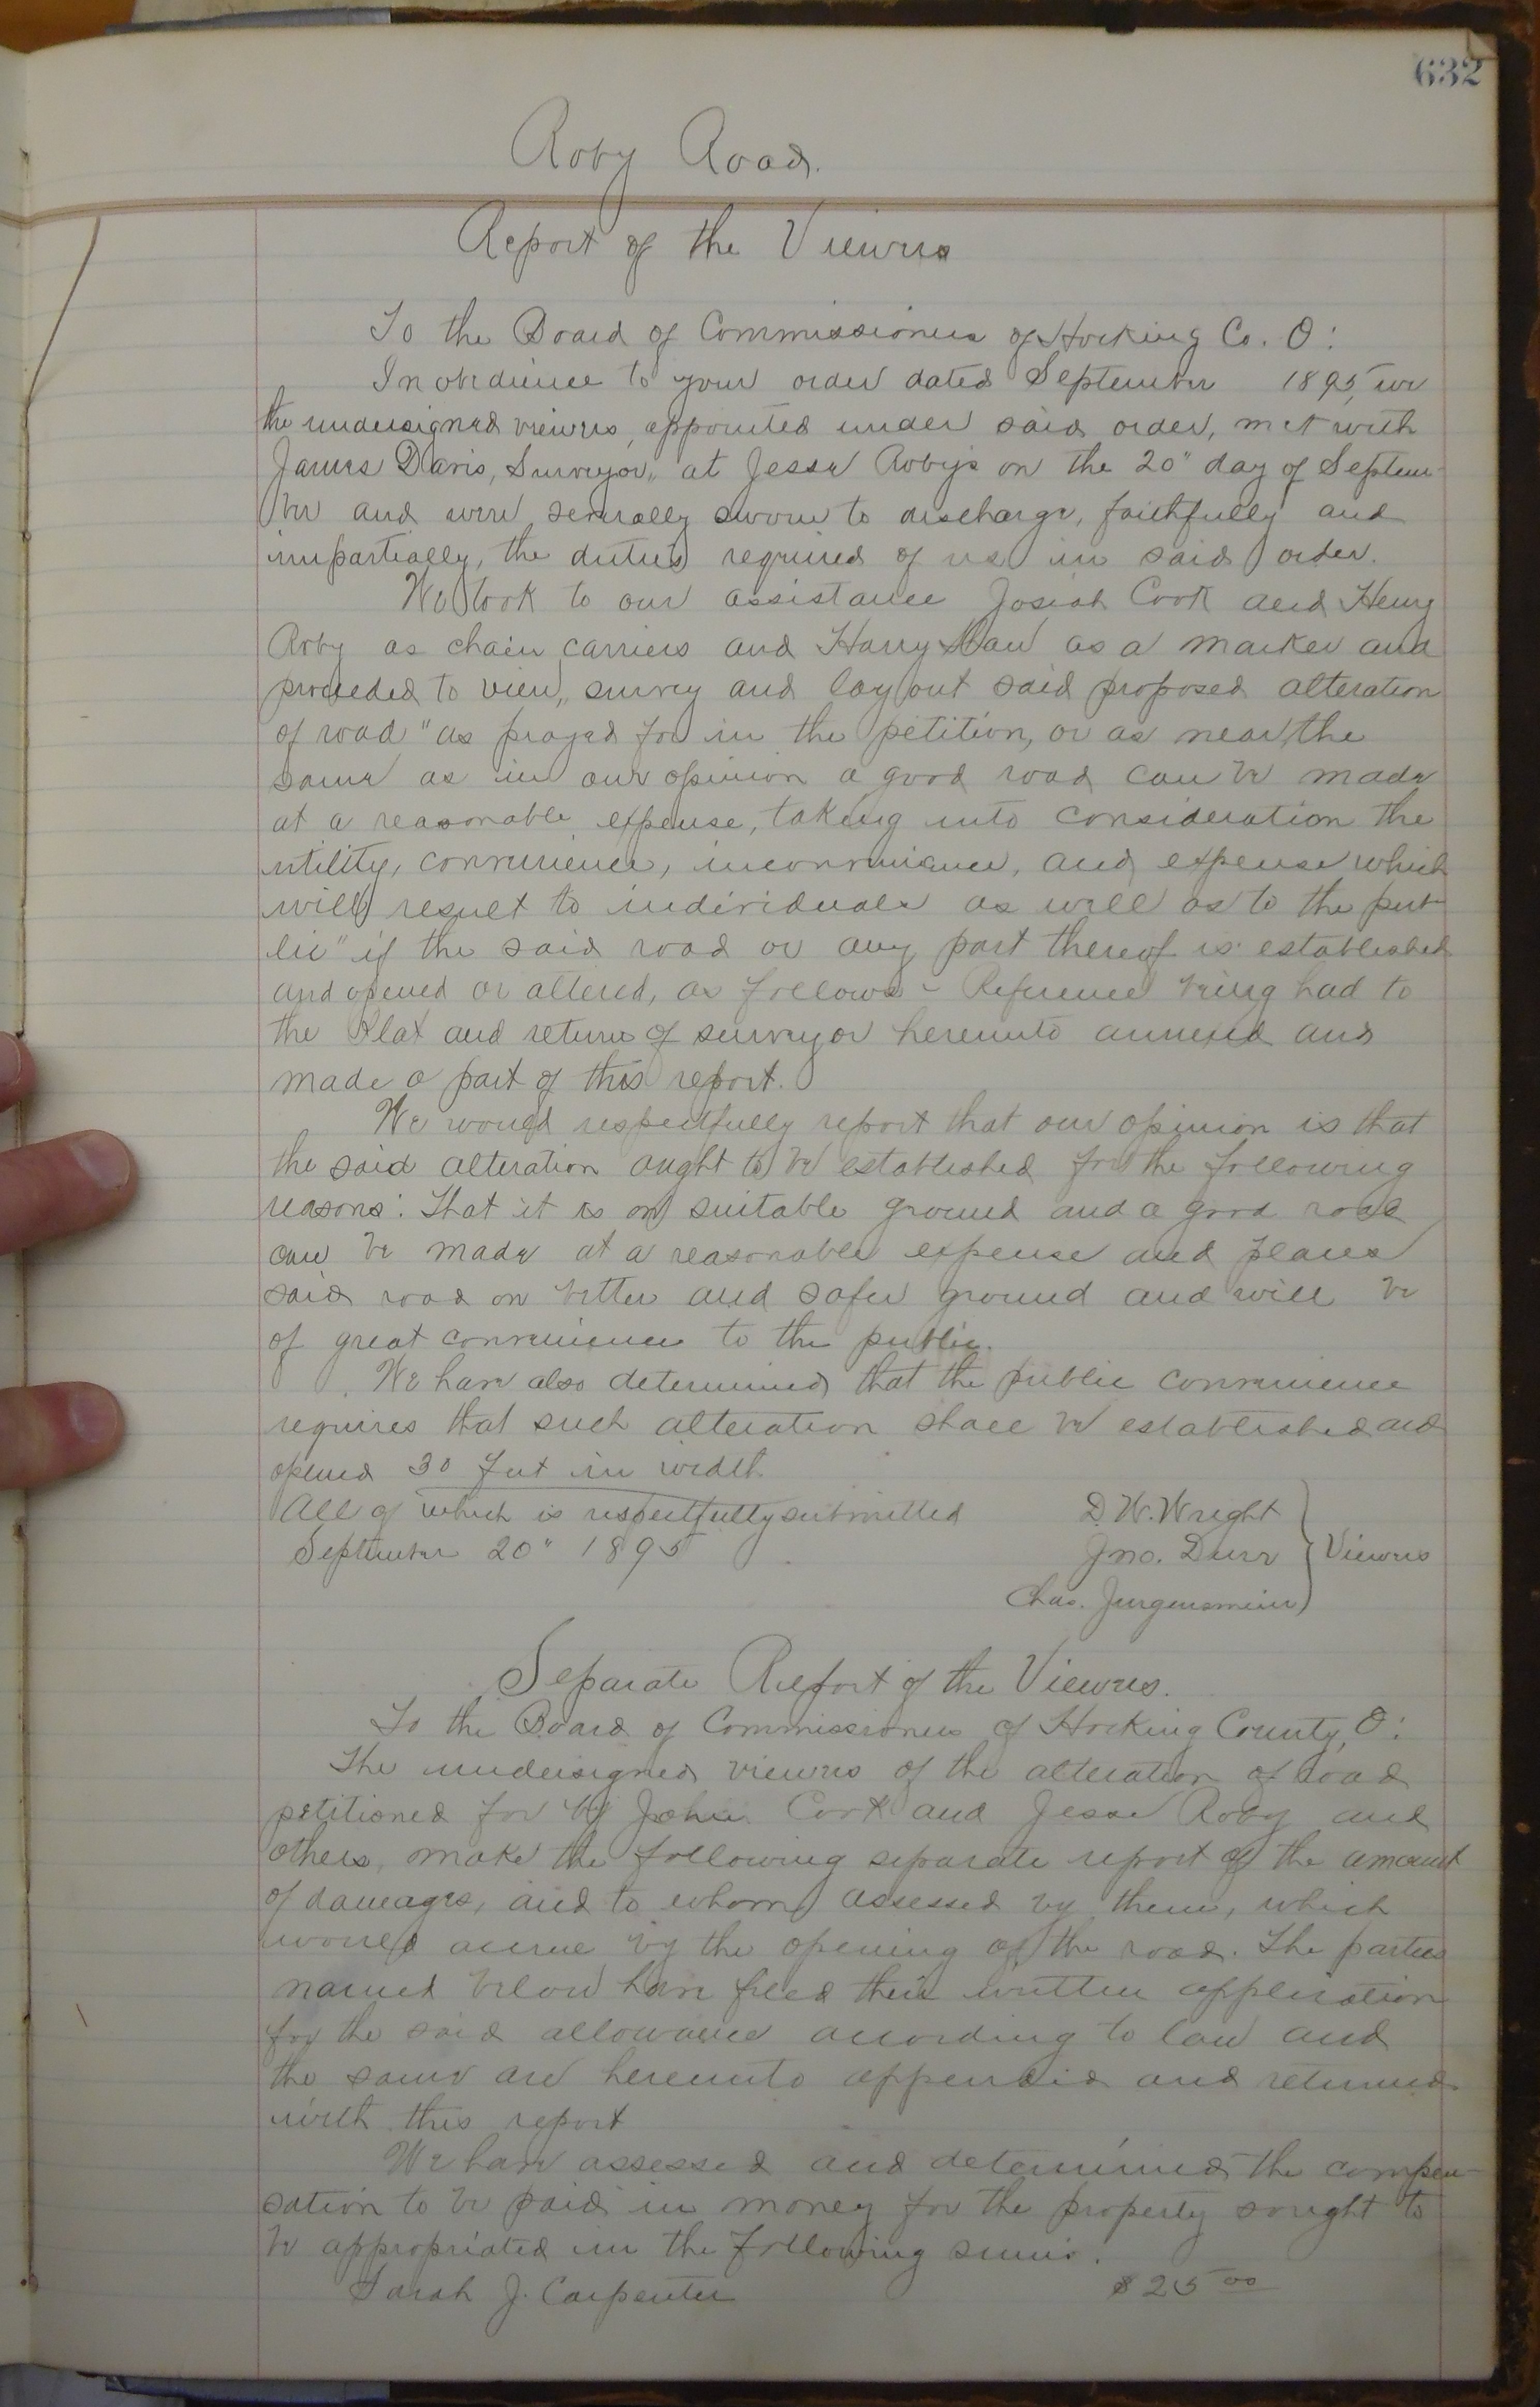 632
Roby Road.
Report of the Viewers
To the Board of Commissioners of Hocking Co. O:
In obedience to your order dated September 1895, we
the undersigned viewers, appointed under said order, met with
James Davis, Surveyor, at Jesse Roby's on the 20" day of Septem-
ber and were severally sworn to discharge, faithfully and
impartially, the duties required of us in said order.
We took to our assistance Josiah Cook and Henry
Roby as chain carriers and Harry as a marker and
proceeded to view, survey and lay out said proposed alteration
of road "as prayed for in the petition, or as near the
same as in our opinion a good road can be made
at a reasonable expense, taking into consideration the
utility, convenience, inconvenience, and expense which
will result to individuals as well as to the pub-
lic" if the said road or any part thereof is established
and opened or altered, as follows - Reference being had to
the Plat and return of surveyor hereunto annexed and
made a part of this report.
We would respectfully report that our opinion is that
the said alteration ought to be established for the following
reasons: That it is on suitable ground and a good road
can be made at a reasonable expense and places
said road on better and safer ground and will be
of great convenience to the public.
We have also determined that the public convenience
requires that such alteration shall be established and
opened 30 feet in width
All of which is respectfully submitted D. W. Wright
September 20" 1895 Jno. Durr Viewers
Chas. Jurgensmeier
Separate Report of the Viewers.
To the Board of Commissioners of Hocking County, O:
The undersigned viewers of the alteration of road
petitioned for by John Cook and Jesse Roby and
others, make the following separate report of the amount
of damages, and to whom assessed by them, which
would accrue by the opening of the road. The parties
named below have filed their written application
for the said allowance according to law and
the same are hereunto appended and returned
with this report
We have assessed and determined the compen-
sation to be paid in money for the property sought to
be appropriated in the following sums:
Sarah J. Carpenter $25 00